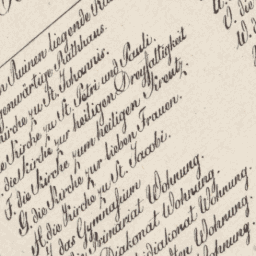 n Ruinen liegende Kl
genwärtige Rathhaus.
irche zu St. Johannis.
e Kirche zu St. Petri und Pauli.
die Kirche zur heiligen Dreyfaltigkeit
F. die Kirche zum heiligen Kreutz.
G. die Kirche zur lieben Frauen.
H. die Kirche zu St. Jacobi.
das Gymnasium
Primariat Wohnung.
Diakonat Wohnung.
idiakonat Wohnung.
ten Wohnung.
Wohnung.